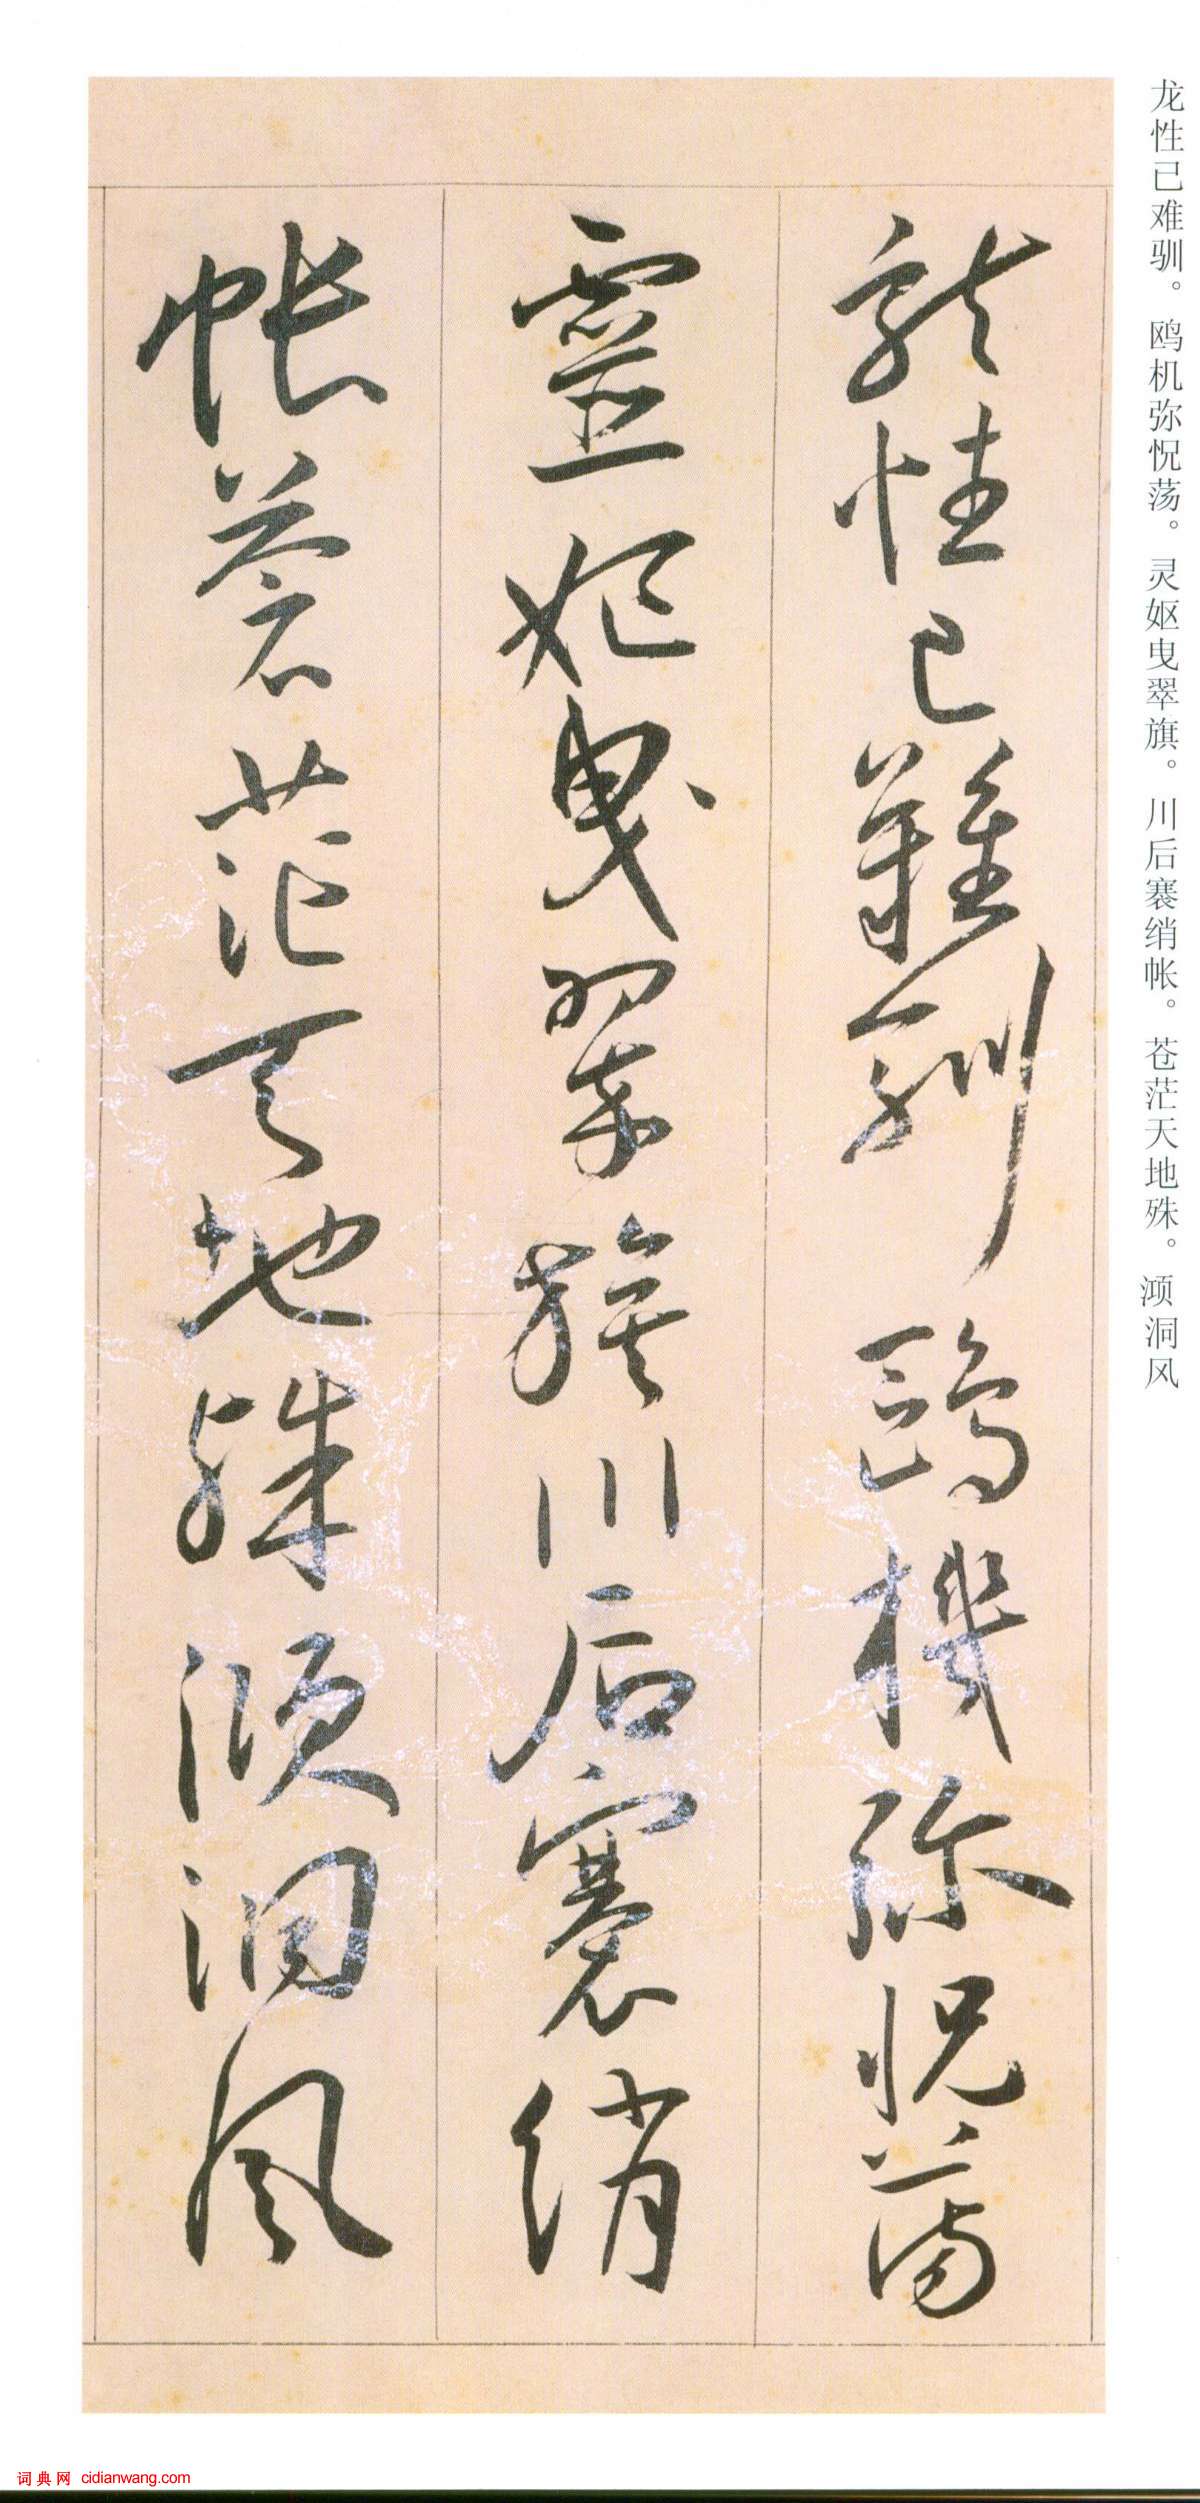 龙性已难驯。鸥机弥怳荡。灵妪曳翠旗。川后褰绡帐。苍茫天地殊。澒洞风
龍性已難馴鷗機彌怳蕩
靈妪曳翠旗川后褰綃
帳蒼茫天地殊澒洞風
词典网 cidianwang.com